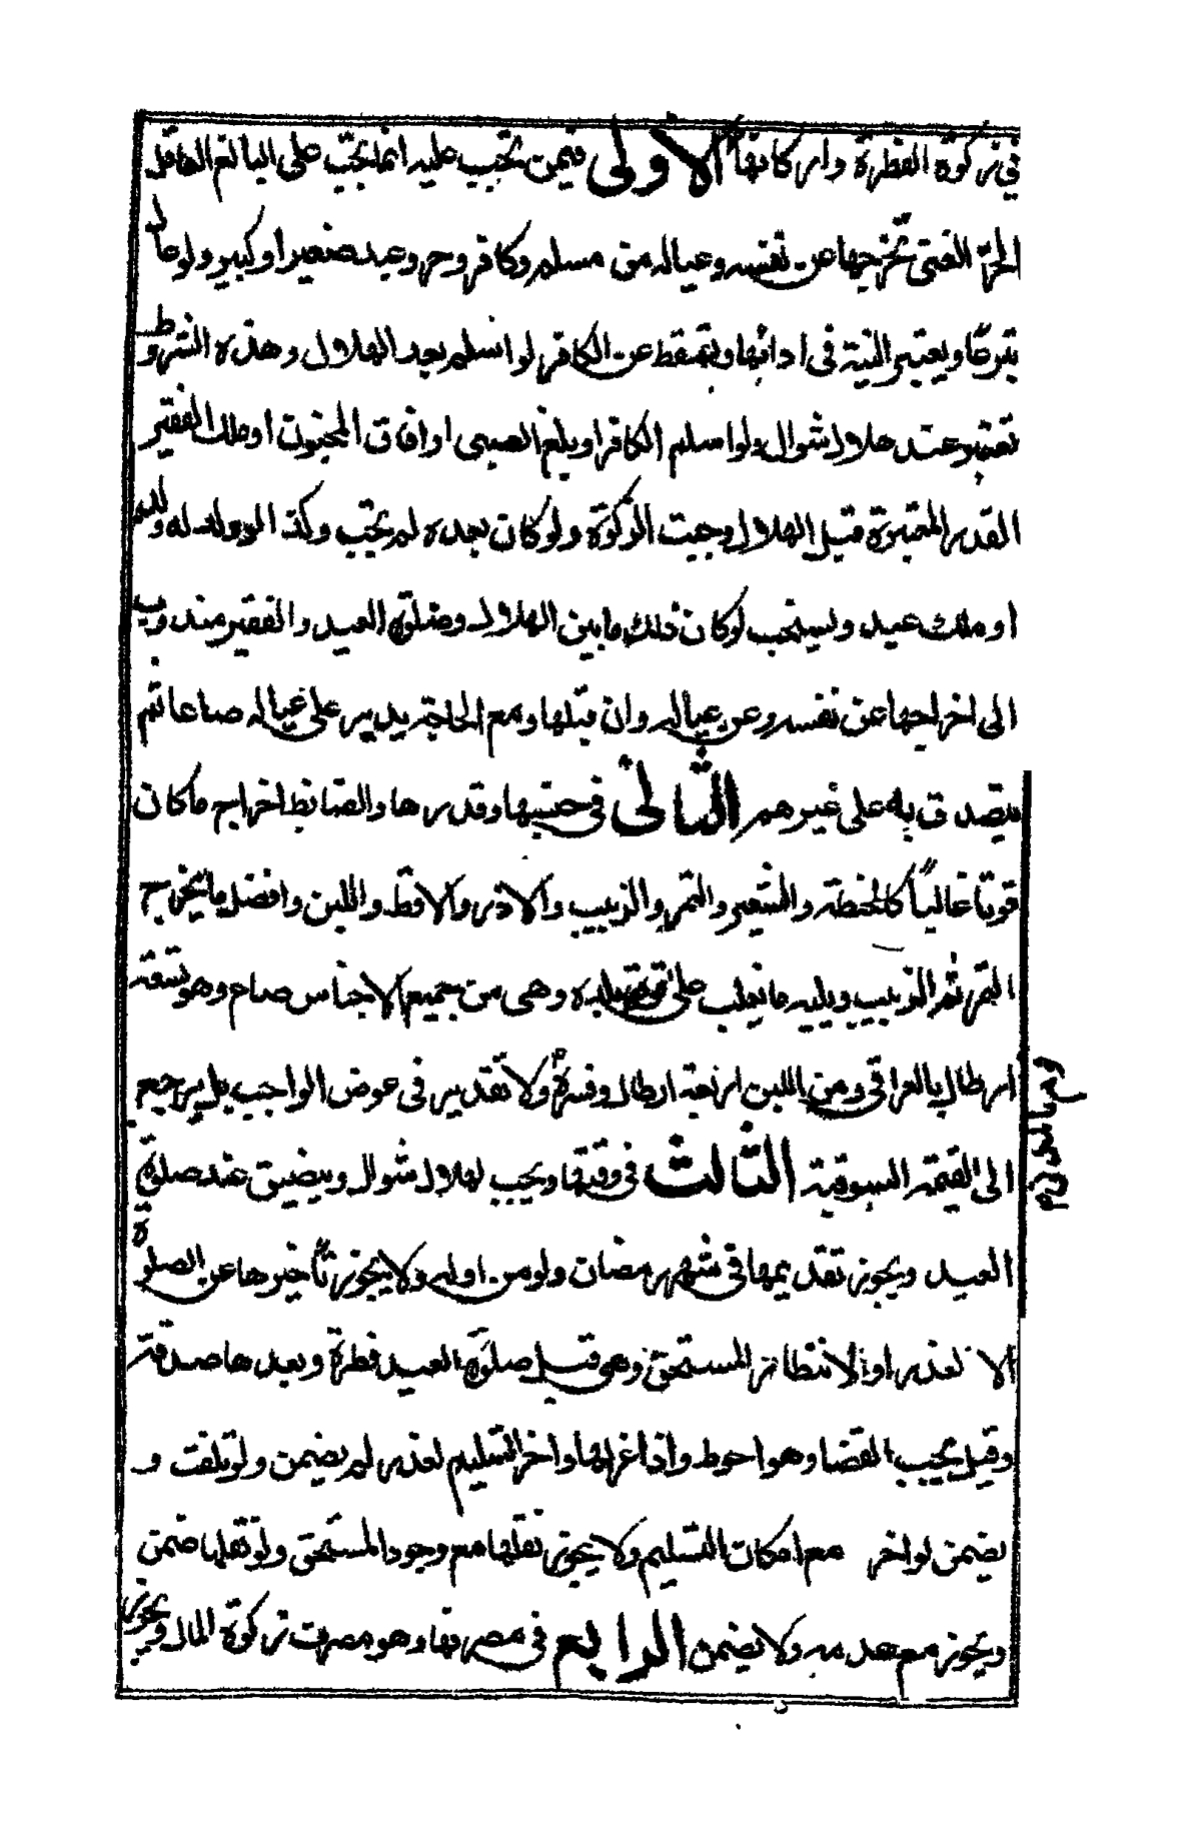 في زكوة الفطرة واركانها الاولى فيمن تجب عليه انما تجب على البالغ العاقل
الحرّ الغنى تخرجها عن نفسه وعياله من مسلم وكافر وحر وعبد صغير او كبير ولو عال
تبرعًا ويعتبر النية فى ادائها وتسقط عن الكافر لو اسلم بعد الهلال وهذه الشروط
تعتبر عند هلال شوال ولو اسلم الكافر او بلغ الصبى او افاق المجنون او ملك الفقير
القدر المعتبرة قبل الهلال وجبت الزكوة ولو كان بعده لم تجب وكذا لو ولد له ولد
او ملك عبد ويستحب لو كان ذلك ما بين الهلال وصلوة العيد والفقير مندوب
الى اخراجها عن نفسه وعن عياله وان قبلها ومع الحاجة يدير على عياله صاعا ثم
يتصدق به على غيرهم الثانى فى جنسها وقدرها والضابط اخراج ما كان
قوتًا غالبًا كالحنطة والشعير والتمر والزبيب والارز والاقط واللبن وافضل ما تخرج
التمر ثم الزبيب ويليه ما يغلب على قوت بلده وهى من جميع الاجناس صاع وهو تسعة
ارطال بالعراقى ومن اللبن اربعة ارطال وفسرة ولا تقدير فى عوض الواجب بل يرجع
الى القيمة السوقية الثالث فى وقتها ويجب لهلال شوال ويضيق عند صلوة
العيد ويجوز تقديمها فى شهر رمضان ولو من اوله ولا يجوز تأخيرها عن الصلوة
الا لعذر او لانتظار المستحق وهى قبل صلوة العيد فطرة وبعدها صدقة
وقيل يجب القضا وهو احوط واذا عزلها واخر التسليم لعذر لم يضمن ولو تلفت و
يضمن لو اخر مع امكان التسليم ولا يجوز نقلها مع وجود المستحق ولو نقلها ضمن
ويجوز مع عدمه ولا يضمن الرابع فى مصرفها وهو مصرف زكوة المال ويجوز